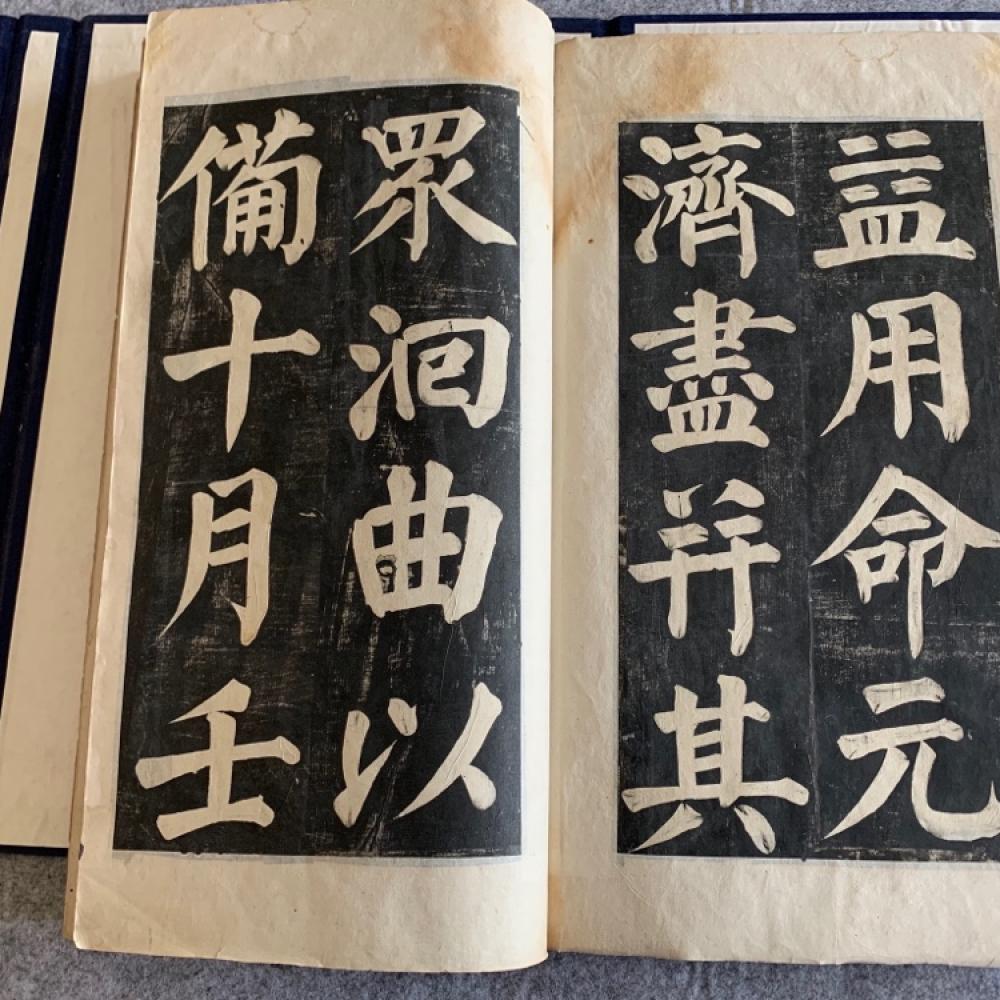 益用命元
濟盡并其
眾洄曲以
備十月壬